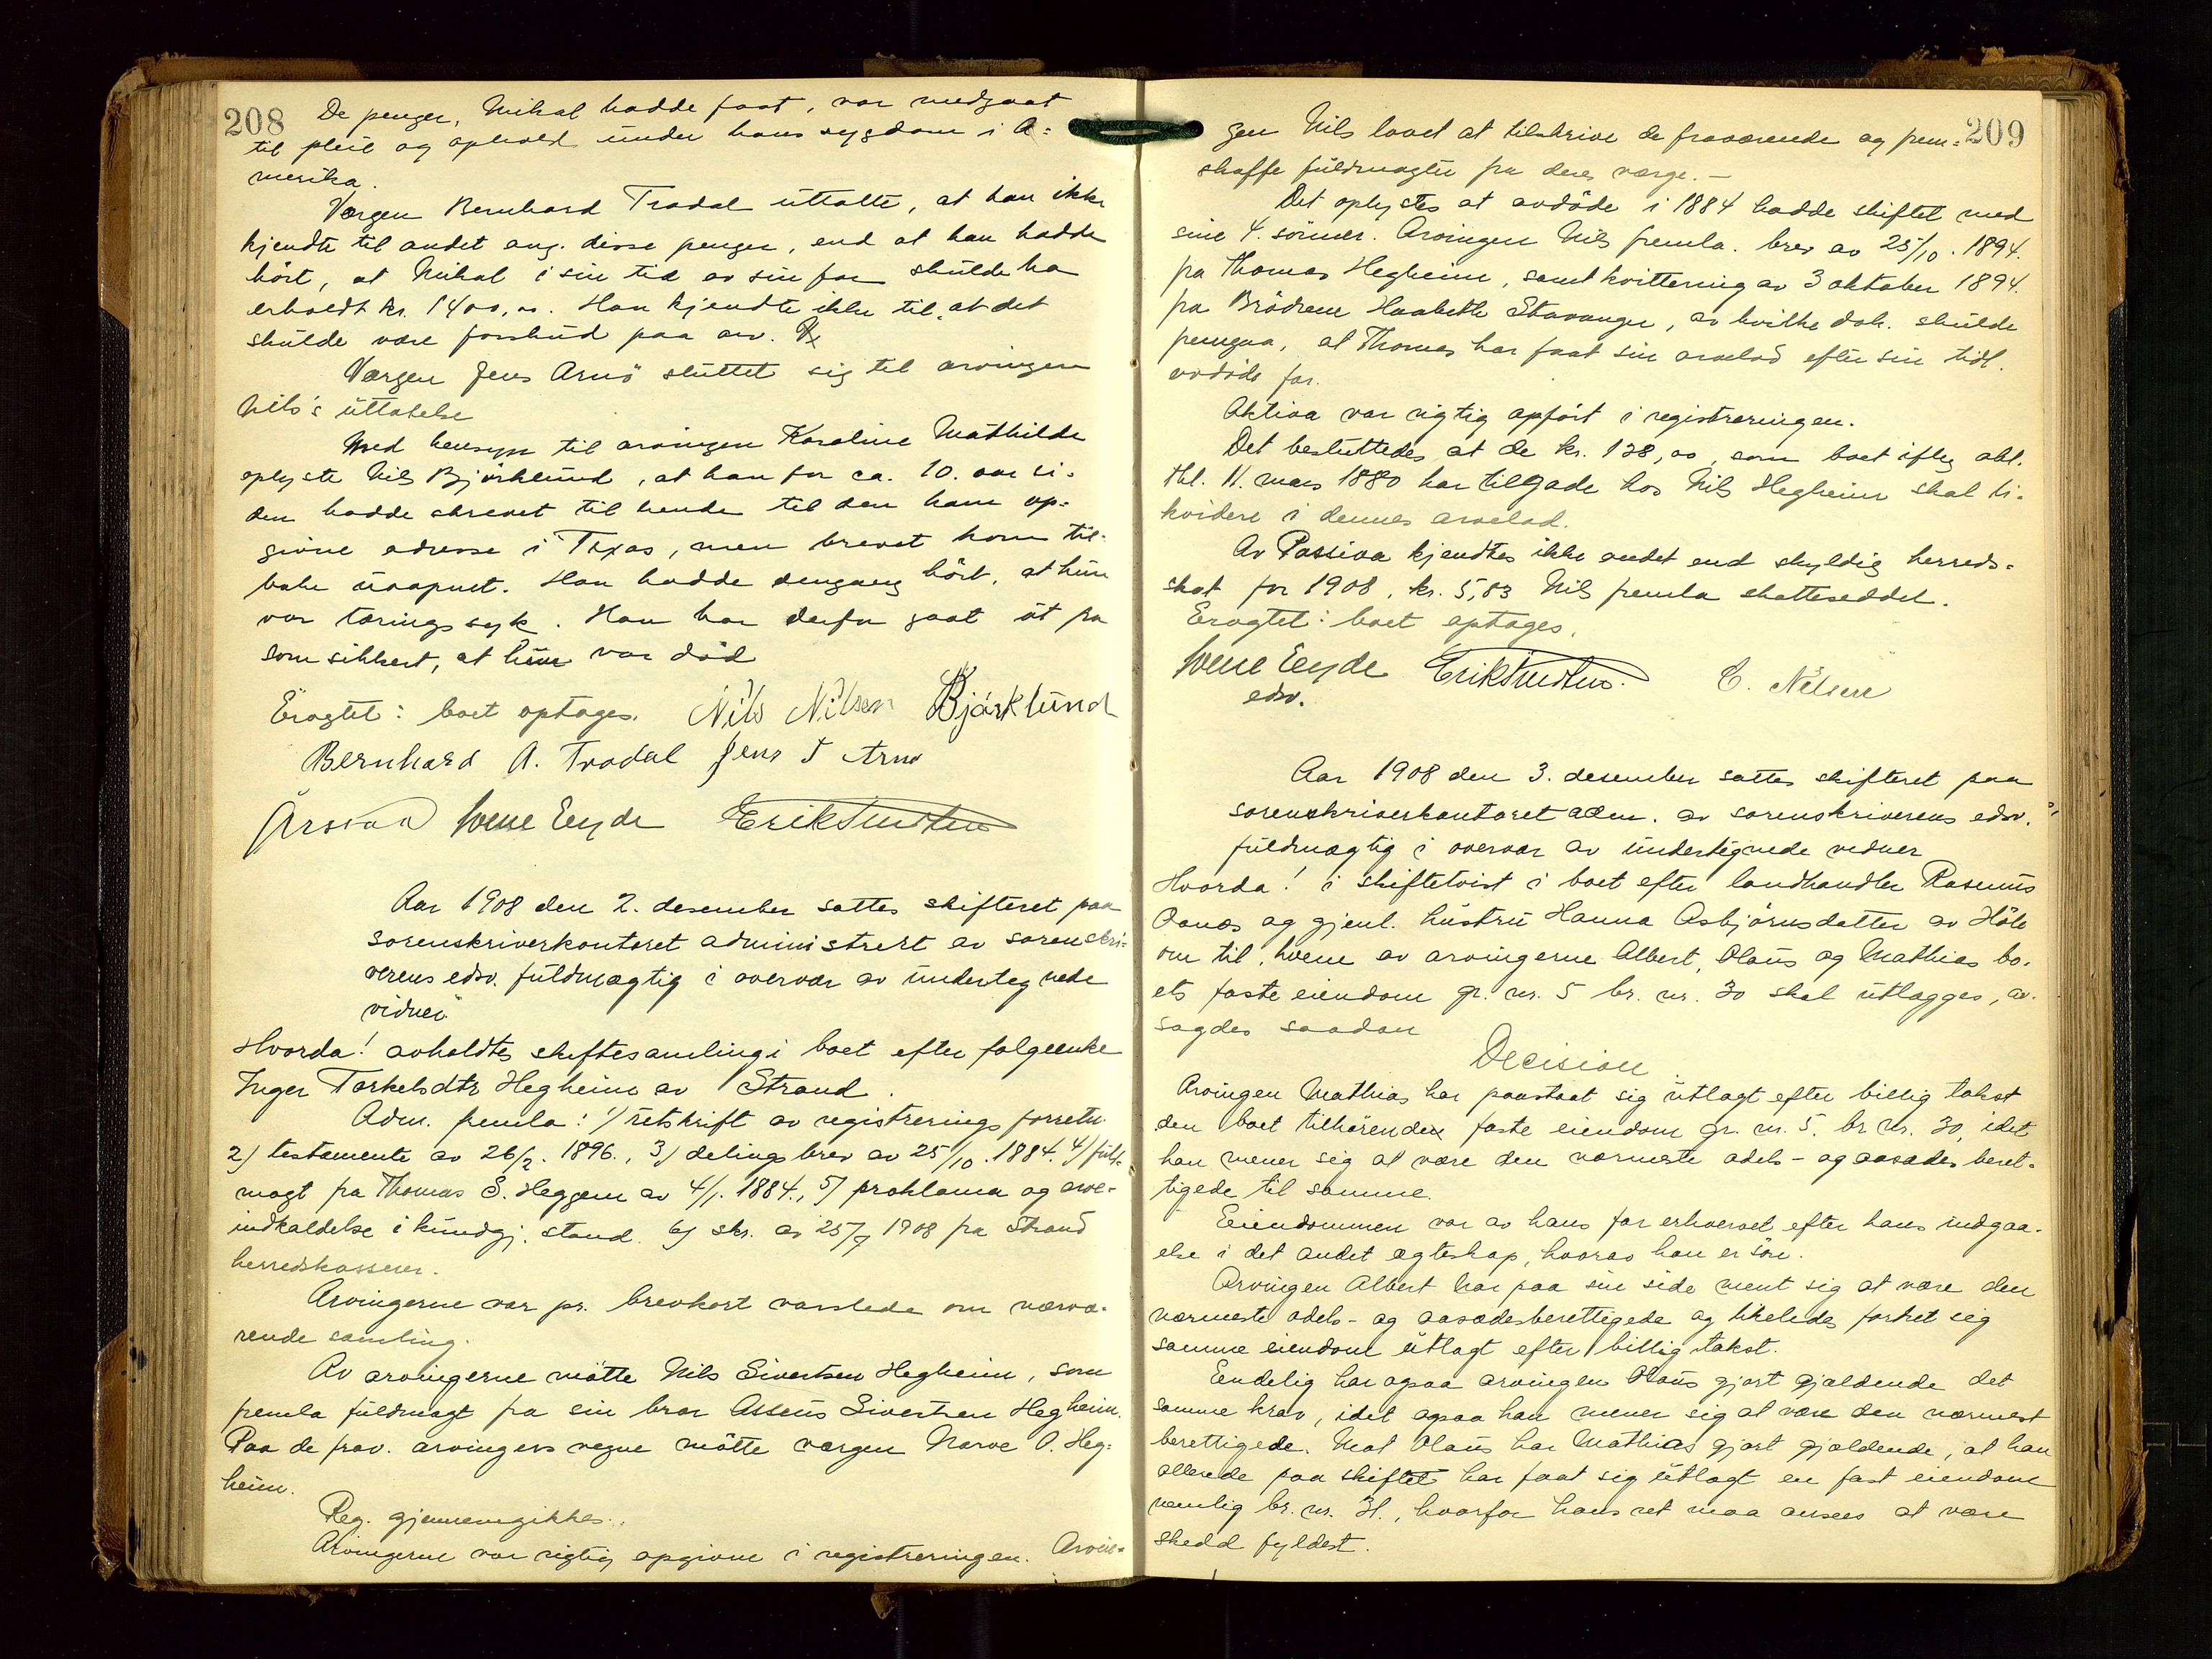 208
De penger, Mikal hadde faat, var medgaat
til pleie og ophold under hans sygdom i A-
merika.
Vergen Bernhard Tradal uttalte, at han ikke
kjendte til andet ang. disse penger, end at han hadde
hørt, at Mikal i sin tid av sin far skulde ha
erholdt kr. 1400,00. Han kjendte ikke til, at det
skulde være forskud paa arv.
Vergen Jens Arnø sluttet sig til arvingen
Nils's uttalelse
Med hensyn til arvingen Karoline Mathilde
oplyste Nils Bjørklund, at han for ca. 10. aar si-
den hadde skrevet til hende til den ham op-
givne adresse i Texas, men brevet kom til-
bake uaapnet. Han hadde dengang hørt, at hun
var tæringssyk. Han har derfor gaat ut fra
som sikkert, at hun var død
Eragtet: boet optages. Nils Nilsen Bjørklund
Bernhard A. Tradal Jens T Arnø
Årsvoll Svene Eeyde Erik Knudsen
Aar 1908 den 2. desember sattes skifteret paa
sorenskriverkontoret administrert av sorenskri-
verens edsv. fuldmægtig i overvær av undertegnede
vidner
Hvorda! avholdtes skiftesamling i boet efter folgeenke
Inger Torkelsdtr Hegheim av Strand.
Adm. fremla: 1) utskrift av registreringsforretn.
2) testamente av 26/2. 1896., 3) delingsbrev av 25/10. 1884. 4) fuld-
magt fra Thomas S. Heggem av 4/1. 1884., 5) proklama og arve-
indkaldelse i kundgj. stand. 6) skr. av 25/9 1908 fra Strand
herredskasserer.
Arvingerne var pr. brevkort varslede om nærvæ-
rende samling.
Av arvingerne møtte Nils Sivertsen Hegheim, som
fremla fuldmagt fra sin bror Asseus Sivertsen Hegheim.
Paa de frav. arvingers vegne møtte vergen Narve O. Heg-
heim.
Reg. gjennemgikkes.
Arvingerne var rigtig opgivne i registreringen. Arvin-
209
gen Nils lovet at tilskrive de fraværende og frem-
skaffe fuldmagter fra deres verge. —
Det oplystes at avdøde i 1884 hadde skiftet med
sine 4. sønner. Arvingen Nils fremla. brev av 25/10. 1894.
fra Thomas Hegheim, samt kvittering av 3 oktober 1894.
fra Brødrene Haabeth Stavanger, av hvilke dok. skulde
fremgaa, at Thomas har faat sin arvelod efter sin tidl.
avdøde far.
Aktiva var rigtig opført i registreringen.
Det besluttedes at de kr. 128,00, som boet iflg obl.
thl. 11. mars 1880 har tilgode hos Nils Hegheim skal li-
kvidere i dennes arvelod.
Av Passiva kjendtes ikke andet end skyldig herreds-
skat for 1908, kr. 5,83 Nils fremla skatteseddel.
Eragtet: boet optages.
Svene Eeyde Erik Knudsen. C. Nilsen
edsv.
Aar 1908 den 3. desember sattes skifteret paa
sorenskriverkontoret adm. av sorenskriverens edsv.
fuldmægtig i overvær av undertegnede vidner
Hvorda! i skiftetvist i boet efter landhandler Rasmus
Oanes og gjenl. hustru Hanna Asbjørnsdatter av Høle
om til hvem av arvingerne Albert, Olaus og Mathias bo-
ets faste eiendom gr. nr. 5 br. nr. 30 skal utlægges, av-
sagdes saadan
Decision.
Arvingen Mathias har paastaat sig utlagt efter billig takst
den boet tilhørende faste eiendom gr. nr. 5. br. nr. 30, idet
han mener sig at være den nærmeste odels- og aasædesberet-
tigede til samme.
Eiendommen var av hans far erhvervet efter hans indgaa-
else i det andet egteskap, hvorav han er søn.
Arvingen Albert har paa sin side ment sig at være den
nærmeste odels- og aasædesberettigede og likeledes forlret sig
samme eiendom utlagt efter billig takst.
Endelig har ogsaa arvingen Olaus gjort gjældende det
samme krav, idet ogsaa han mener sig at være den nærmest
berettigede. Mot Olaus har Mathias gjort gjældende, at han
allerede paa skiftet har faat sig utlagt en fast eiendom
nemlig br. nr. 31., hvorfor hans ret maa ansees at være
skedd fyldest.